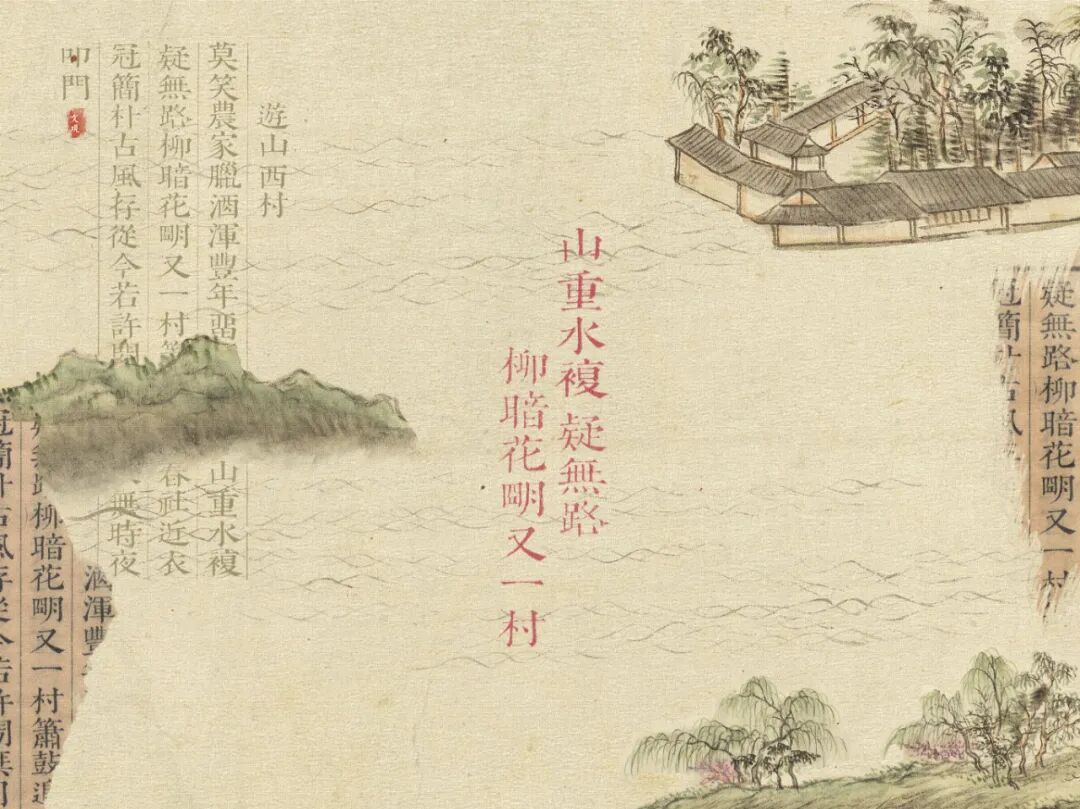 疑無路柳暗花明又一村
冠簡朴古風
山重水複疑無路
柳暗花明又一村
遊山西村
莫笑農家臘酒渾豐年留 山重水複
疑無路柳暗花明又一村簫 春社近衣
冠簡朴古風存從今若許閒 無時夜
叩門
酒渾豐
疑無路柳暗花明又一村簫鼓追
冠簡朴古風存從今若許閒乘月